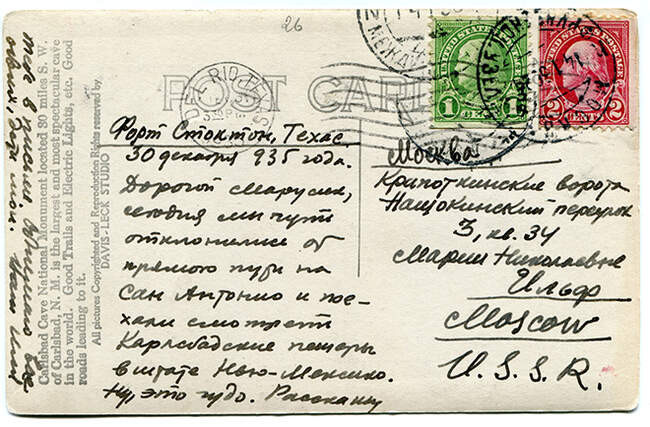 26
POST CARD
DEL RIO, TEXAS
UNITED STATES POSTAGE
1 CENT 1
UNITED STATES POSTAGE
2 CENTS 2
Форт Стоктон, Техас
30 декабря 935 года.
Дорогой Марусик,
сегодня мы чуть
отклонились от
прямого пути на
Сан Антонио и пое-
хали смотреть
Карлсбадские пещеры
в штате Нью-Мексико.
Ну, это чудо. Расскажу
тебе в письме. Обнимаю
Москва
Кропоткинские ворота
Нащокинский переулок
3, кв. 34
Марии Николаевне
Ильф
Moscow
U.S.S.R.
Carlsbad Cave National Monument located 30 miles S. W.
of Carlsbad, N. M. is the largest and most spectacular cave
in the world. Good Trails and Electric Lights, etc. Good
roads leading to it.
All pictures Copyrighted and Reproduction Rights reserved by
DAVIS-LECK STUDIO